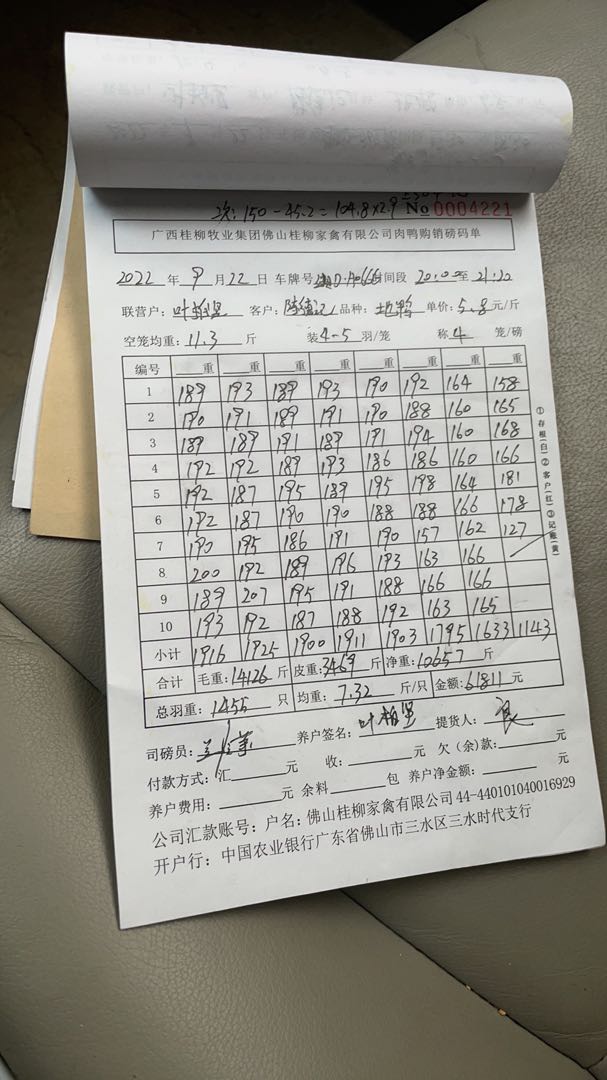 次: 150-45.2=104.8×2.9 No 0004221
广西桂柳牧业集团佛山桂柳家禽有限公司肉鸭购销磅码单
2022 年 9 月 22 日 车牌号 间段 20:00 至 21:20
联营户: 叶柏坚 客户: 品种: 土鸭 单价: 5.8 元/斤
空笼均重: 11.3 斤 装 4-5 羽/笼 称 4 笼/磅
编号 重 重 重 重 重 重 重 重
1 189 193 189 193 190 192 164 158
2 190 191 189 191 190 188 160 165
3 189 189 191 189 191 194 160 168
4 192 192 189 193 186 186 160 166
5 192 187 195 189 195 198 164 181
6 192 187 190 190 188 188 166 178
7 190 195 186 191 190 157 162 127
8 200 192 189 196 193 163 166
9 189 207 195 191 188 166 166
10 193 192 187 188 192 163 165
小计 1916 1925 1900 1911 1903 1795 1633 1143
合计 毛重: 14126 斤 皮重: 3469 斤 净重: 10657 斤
总羽重: 1455 只 均重: 7.32 斤/只 金额: 61811 元
①存根(白)②客户(红)③记账(黄)
司磅员: 养户签名: 叶柏坚 提货人:
付款方式: 汇 元 收: 元 欠(余)款: 元
养户费用: 元 余料 包 养户净金额: 元
公司汇款账号: 户名: 佛山桂柳家禽有限公司 44-440101040016929
开户行: 中国农业银行广东省佛山市三水区三水时代支行